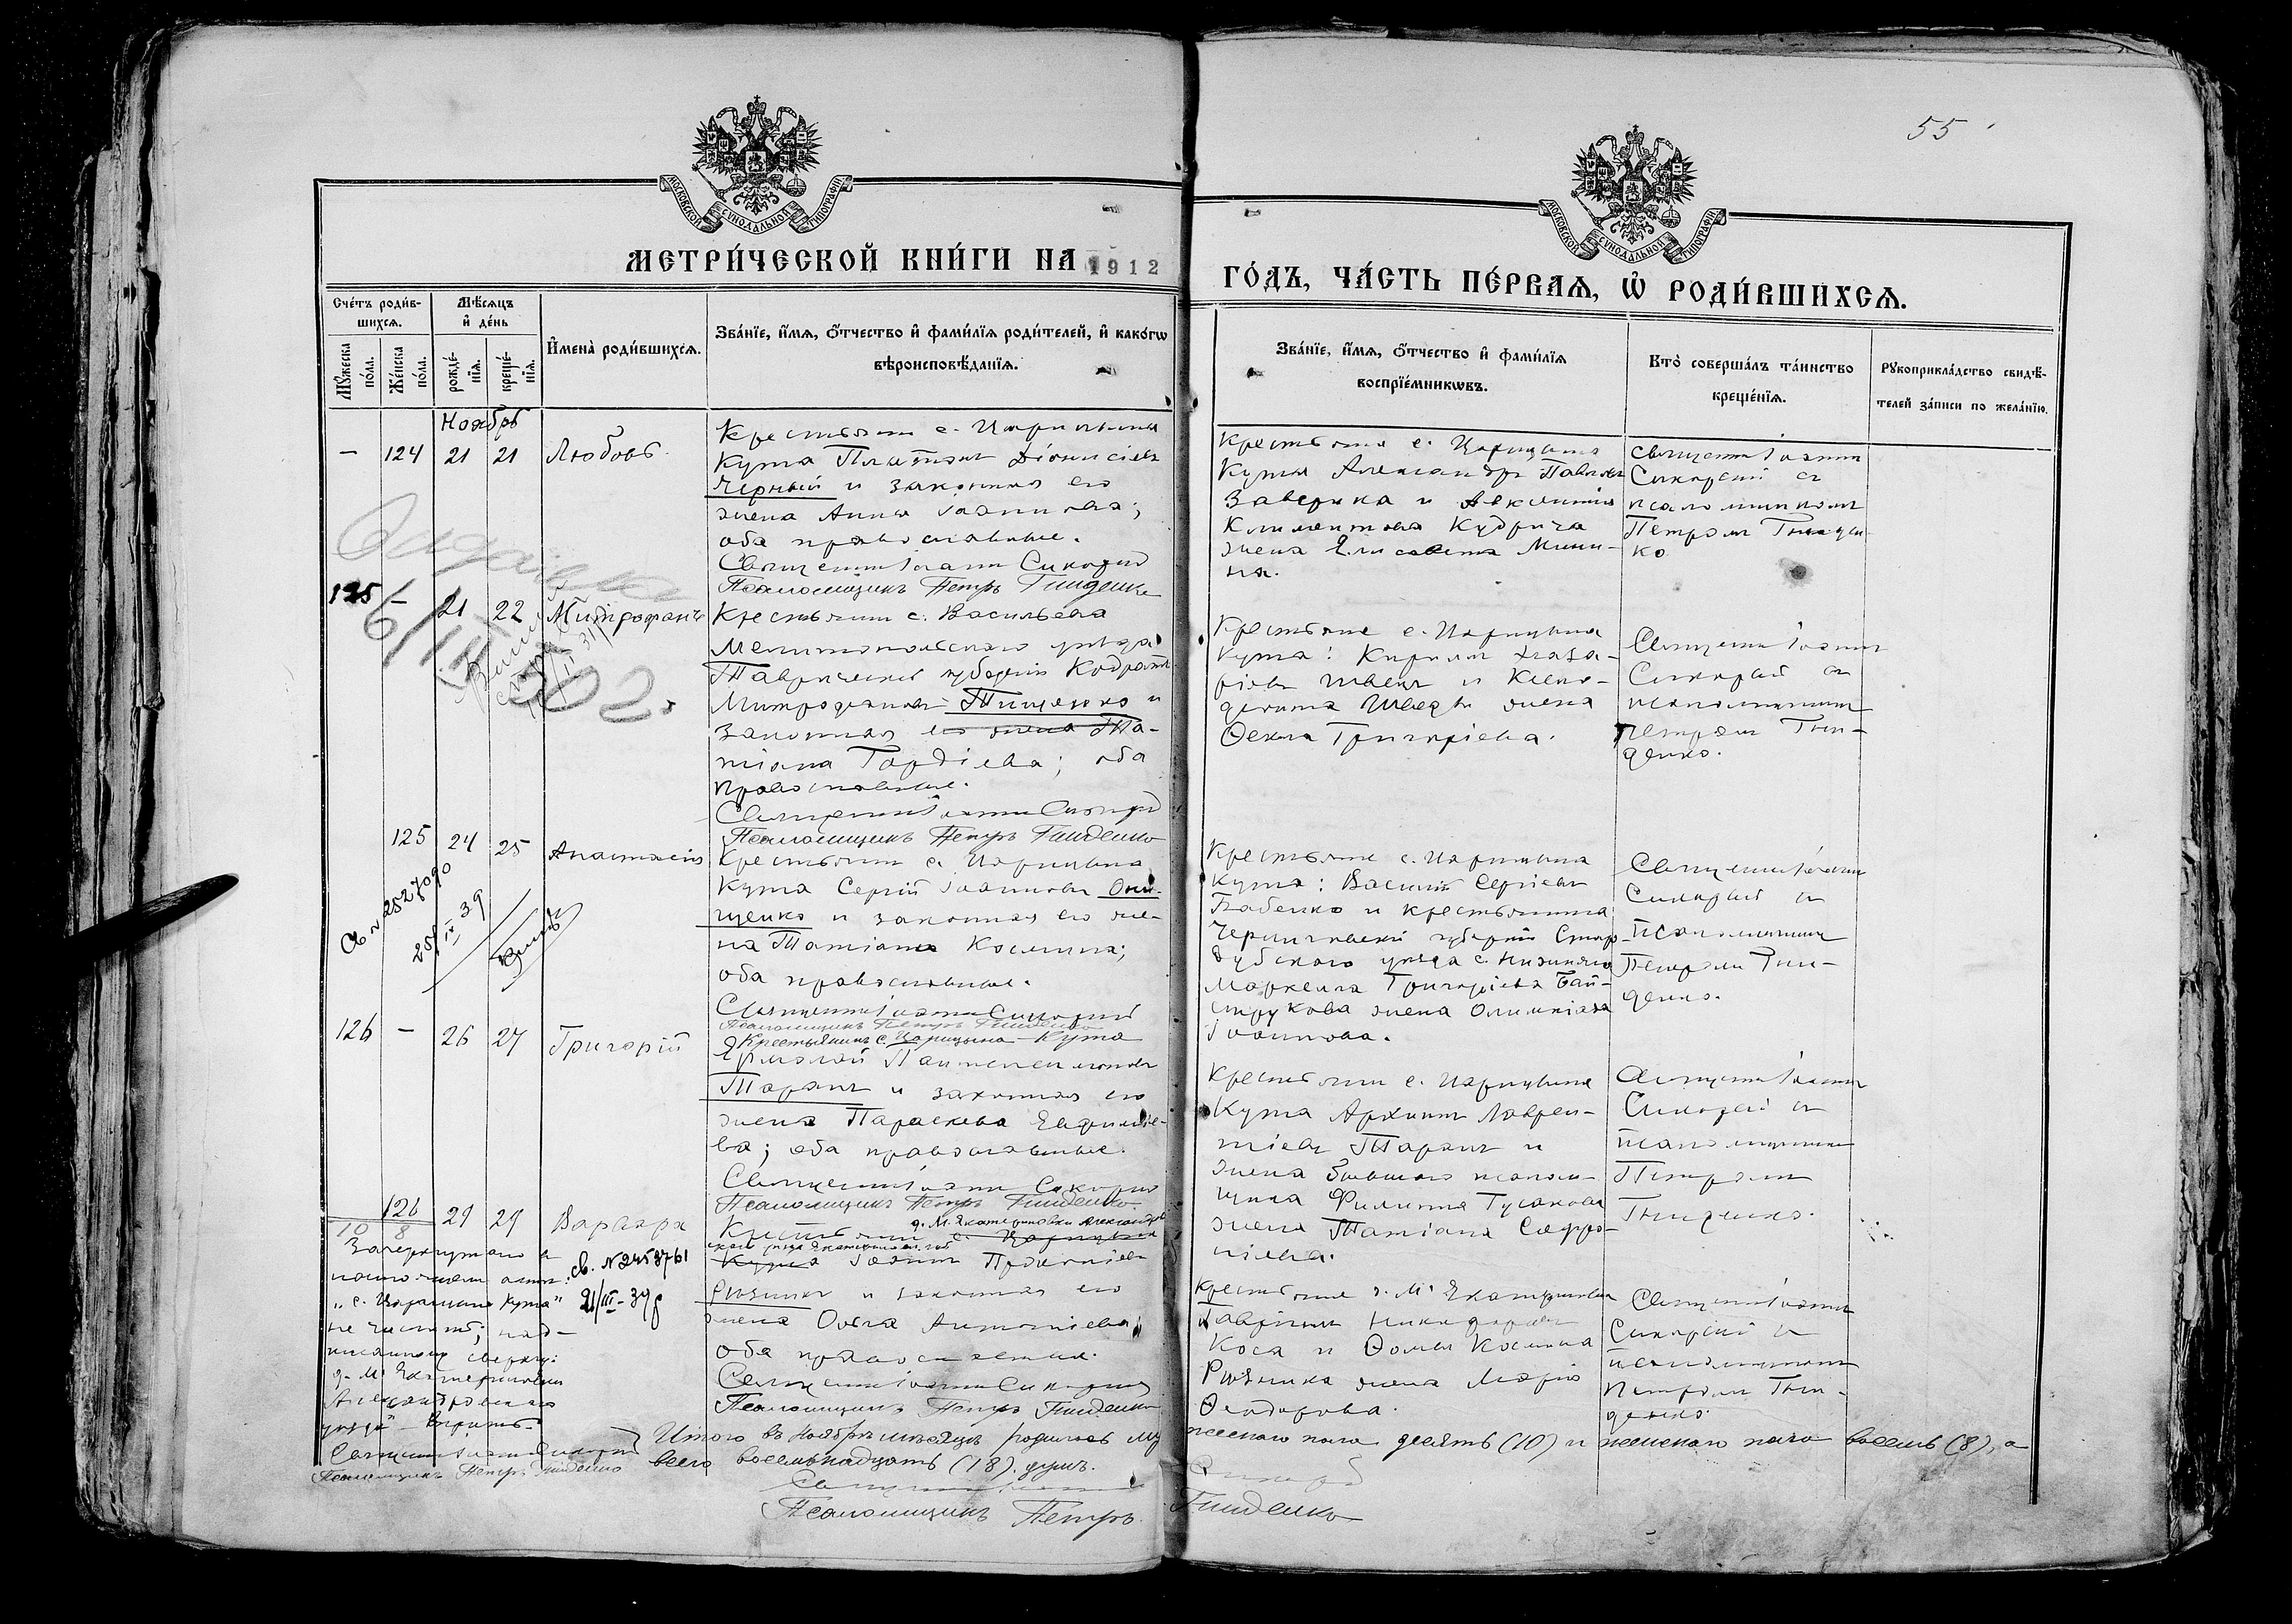 55
МОСКОВСКОЙ СѴНОДАЛЬНОЙ ТИПОГРАФІИ
МОСКОВСКОЙ СѴНОДАЛЬНОЙ ТИПОГРАФІИ
МЕТРИ́ЧЕСКОЙ КНИ́ГИ НА 1912
ГО́ДЪ, ЧА́СТЬ ПЕ́РВАѦ, Ѡ҆ РОДИ́ВШИХСѦ.
Сче́тъ роди́в-
шихсѧ.
Мꙋ́жеска по́ла.
Же́нска по́ла.
Мѣ́сѧцъ
и҆ де́нь
рожде́-
нїѧ.
креще́-
нїѧ.
И҆мена̀ роди́вшихсѧ.
Зва́нїе, и҆́мѧ, ѻ҆́тчество и҆ фами́лїѧ роди́телей, и҆ како́гѡ
вѣроисповѣ́данїѧ.
Зва́нїе, и҆́мѧ, ѻ҆́тчество и҆ фами́лїѧ
воспрїе́мникѡвъ.
Кто̀ соверша́лъ та́инство
креще́нїѧ.
Рꙋкоприкла́дство свидѣ́-
телей за́писи по жела́нїю.
Ноябрь
— 124 21 21 Любовь
Крестьянин с. Царицына
Кута Платон Діонисіев
Черный и законная его
жена Анна Іоаннова;
оба православные.
Священник Іоанн Сикорский
Псаломщикъ Петръ Гниденко
Крестьяне с. Царицына
Кута Александр Павлов
Заверика и Авксентия
Климентова Кудрича
жена Елисавета Мини-
на.
Священник Іоанн
Сикорский с
псаломщиком
Петром Гниден-
ко
125 — 21 22 Митрофанъ
Крестьянин с. Васильевка
Мелитопольского уезда
Таврической губернии Кодрат
Митрофанов Тищенко и
законная его жена Та-
тіана Гордіева; оба
православные.
Священник Іоанн Сикорский
Псаломщикъ Петръ Гниденко
Крестьяне с. Царицына
Кута: Кирилл Наза-
ріев Швец и
Шведы жена
Ѳекла Григоріева.
Священник Іоанн
Сикорский с
псаломщиком
Петром Гни-
денко.
125 24 25 Анастасія
Св № 2527090
25/IV 39
Крестьянин с. Царицына
Кута Сергій Іоаннов Они-
щенко и законная его же-
на Татіана Косьмина;
оба православные.
Священник Іоанн Сикорский
Псаломщикъ Петръ Гниденко
Крестьяне с. Царицына
Кута: Василій Сергіев
Бабенко и крестьянина
Черниговской губернии Старо-
дубского уезда с. Нижняго
Маркелла Григоріева Бай-
струкова жена Олимпіада
Іоаннова.
Священник Іоанн
Сикорский с
псаломщиком
Петром Гни-
денко.
126 — 26 27 Григорій
Крестьянинъ с. Царицына-Кута
Ермолай Пантелеимонов
Таран и законная его
жена Параскева Евфиміе-
ва; оба православные.
Священник Іоанн Сикорский
Псаломщикъ Петръ Гниденко.
Крестьянин с. Царицына
Кута Архипп Лаврен-
тіев Таран и
жена бывшаго псалом-
щика Филиппа Гусакова
жена Татіана Софро-
ніева.
Священник Іоанн
Сикорский с
псаломщиком
Петром
Гниденко.
126 29 29 Варвара
10 8
д. М. Екатериновки Александров
Крестьянин с. Царицына
ского уезда Екатериносл. губ
Кута Іоанн Прокопіев
Рязанец и законная его
жена Ольга Антоніева;
оба православные.
Священник Іоанн Сикорский
Псаломщикъ Петръ Гниденко
Крестьяне д. М. Екатериновки
Гавріил Никифоров
Коса и Ѳомы Косьмина
жена Марія
Ѳеодорова.
Священник Іоанн
Сикорский с
псаломщиком
Петром Гни-
денко.
Зачеркнутаго в
настоящем акте:
„с. Царицына Кута"
не читать; над-
писанному сверху:
д. М. Екатериновки
Александровского
уезда" — верить.
Священник Іоанн Сикорский
Псаломщикъ Петръ Гниденко
св. № 2453761
21/III-39 г
Итого въ Ноябрѣ мѣсяцѣ родилось мужескаго пола десять (10) и женскаго пола восемь (8), а
всего восемнадцать (18) душъ.
Священник Іоанн Сикорский
Псаломщикъ Петръ Гниденко